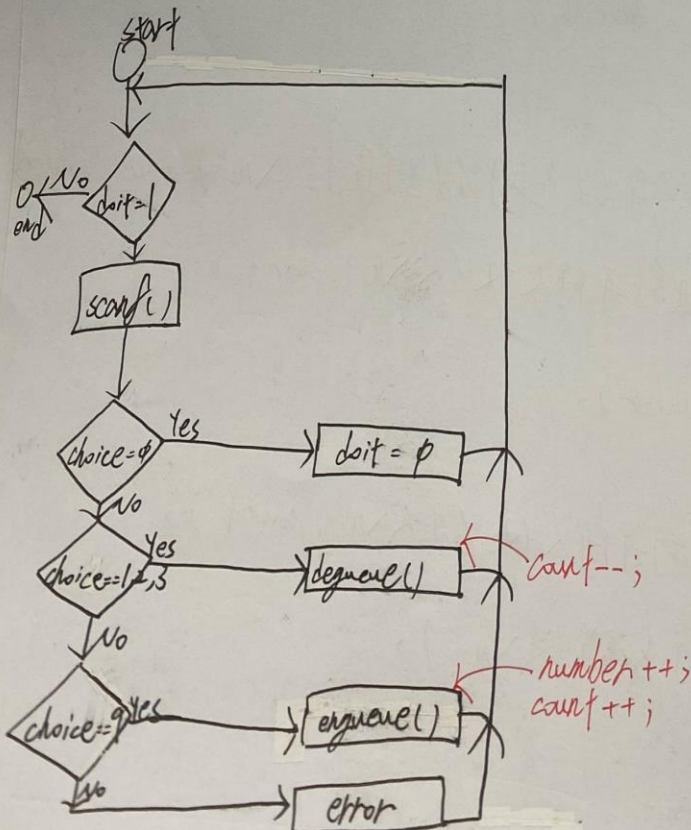 start
No
doit=1
end
scanf()
choice=φ
Yes
doit = φ
No
choice==1,2,3
Yes
dequeue()
count--;
No
choice==9
Yes
enqueue()
number++;
count++;
No
error